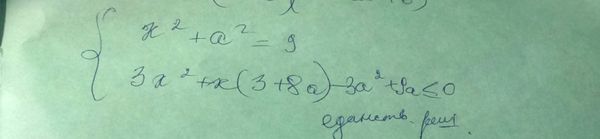 x² + a² = 9
3x² + x(3+8a) - 3a² + 9a ≤ 0
единств. реш.